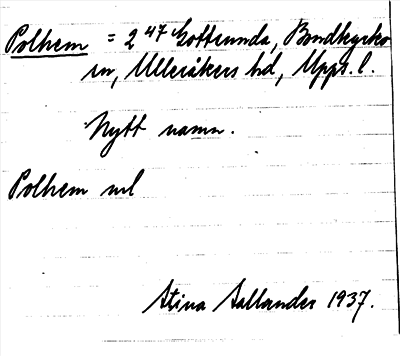 Polhem = 2⁴⁷ Gottsunda, Bondkyrko
sn, Ulleråkers hd, Upps. l.
Nytt namn.
Polhem ml
Stina Sallander 1937.